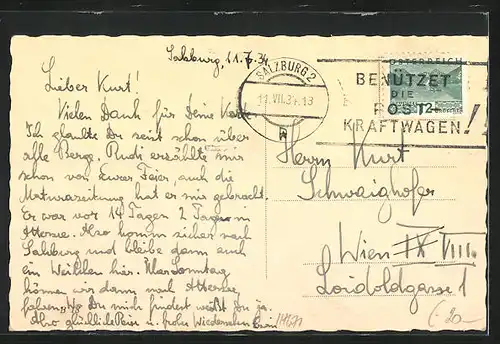 Salzburg, 11.7.34
Lieber Kurt!
Vielen Dank für Deine Karte
Ich glaubte Du seist schon über
alle Berge. Rudi erzählte mir
schon von Eurer Feier, auch die
Maturazeitung hat er mir gebracht.
Er war vor 14 Tagen 2 Tage in
Attersee. Also komm sicher nach
Salzburg und bleibe dann auch
ein Weilchen hier. Sonntag
können wir dann nach Attersee
fahren. Wo Du mich findest weißt Du ja.
Also glückliche Reise u. frohes Wiedersehen
SALZBURG 2
11.VII.34.13
ÖSTERREICH
12
BENÜTZET
DIE
POST-
KRAFTWAGEN!
Herrn Kurt
Schwaighofer
Wien IX VIII.
Loidoldgasse 1
20-